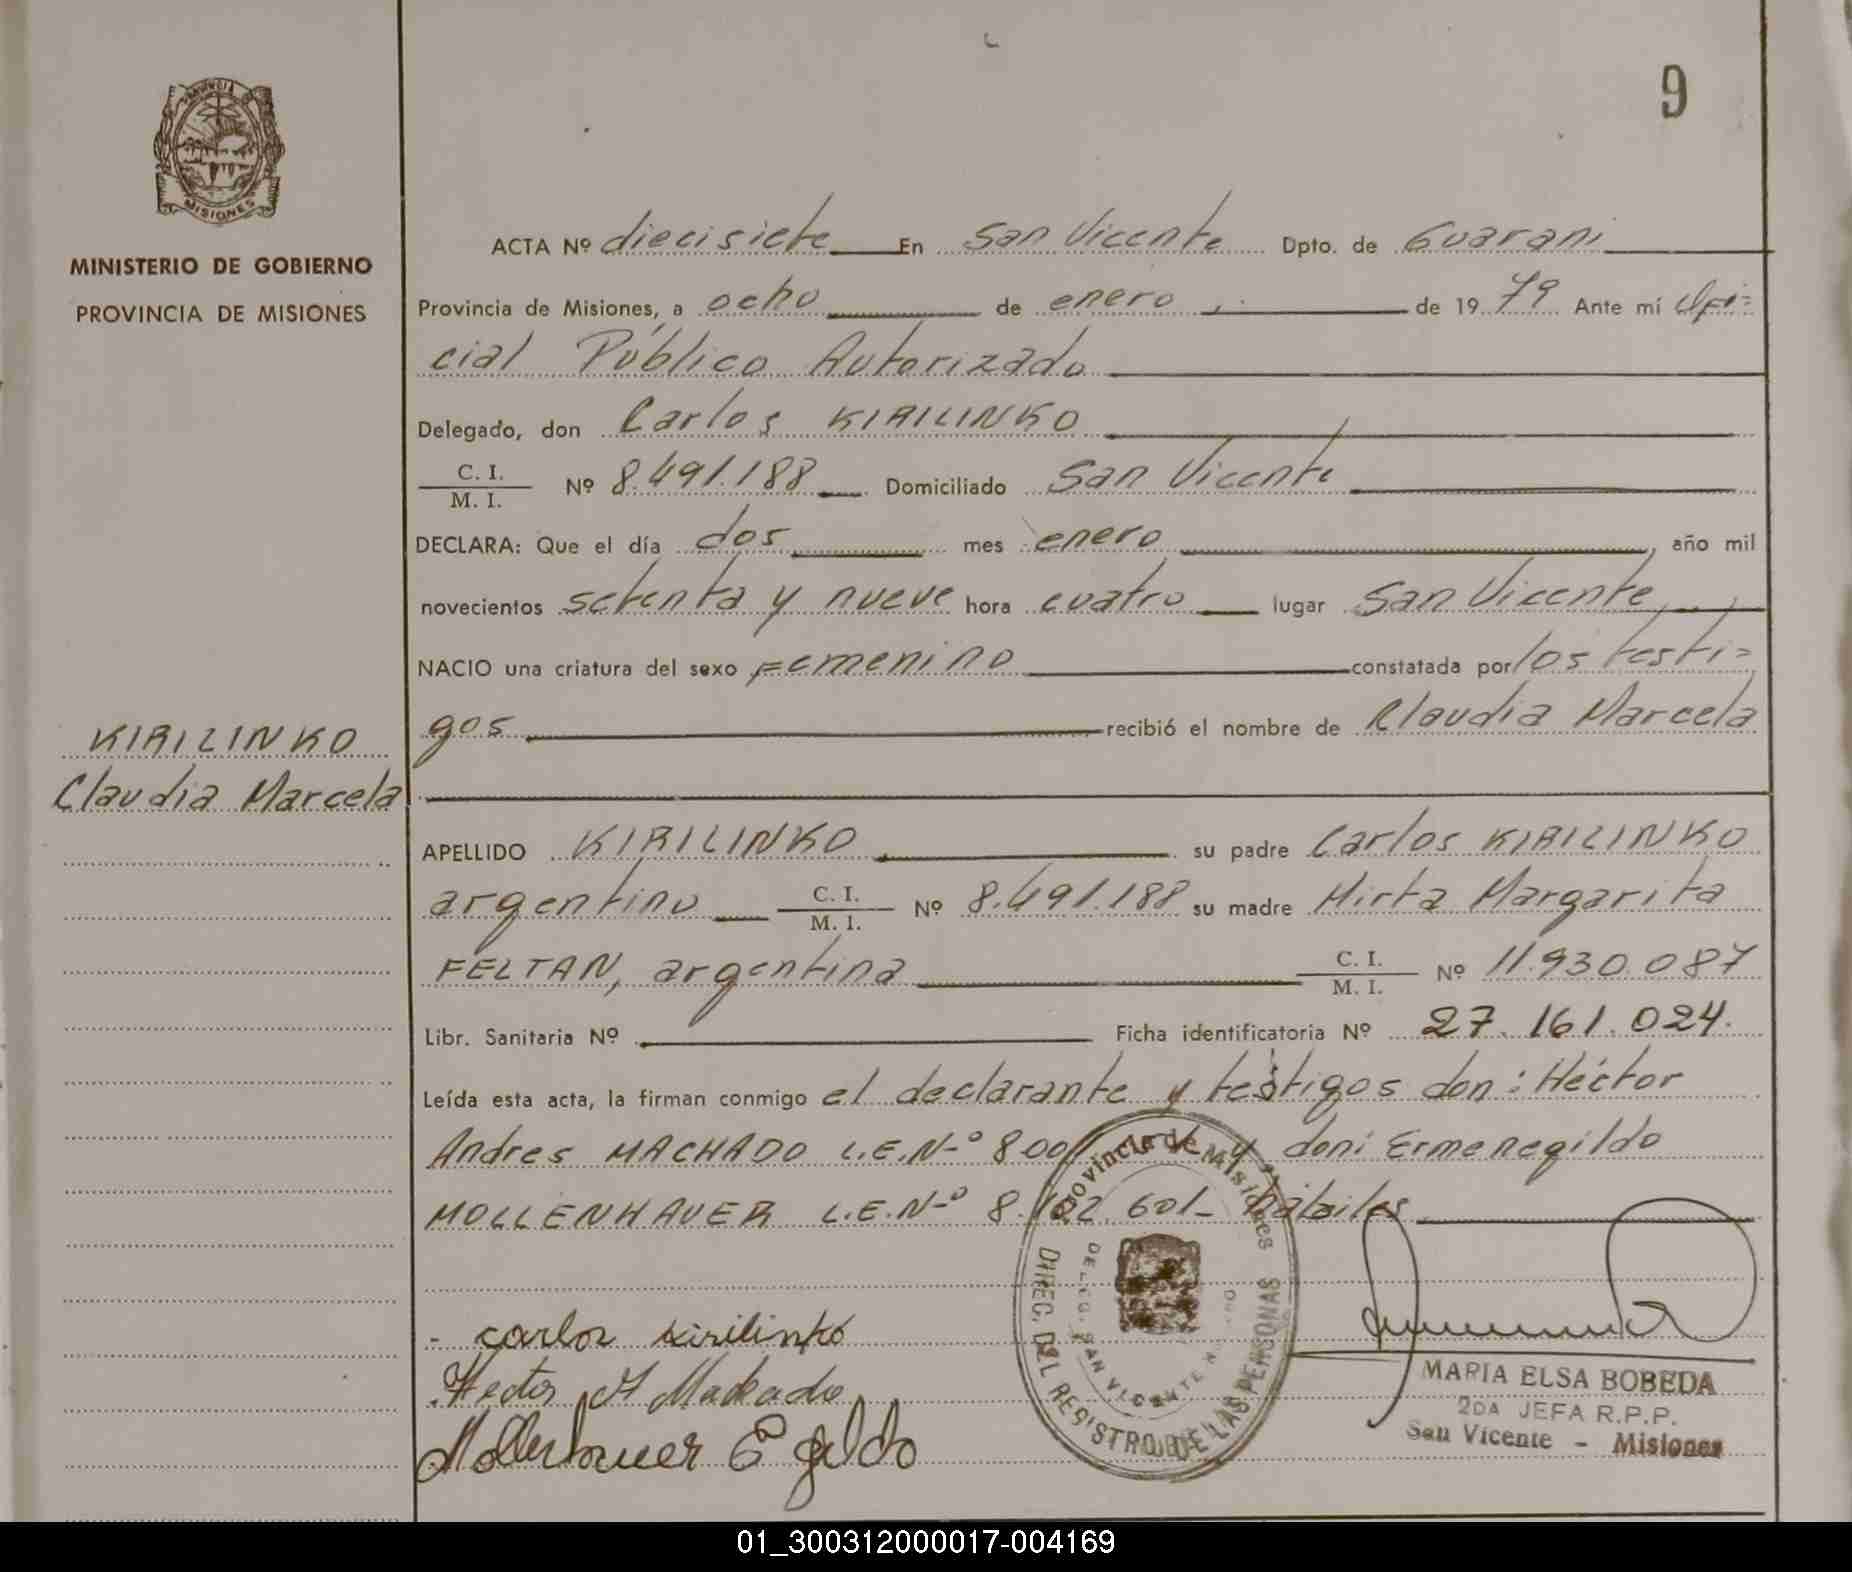 9
PROVINCIA
MISIONES
MINISTERIO DE GOBIERNO
PROVINCIA DE MISIONES
ACTA Nº diecisiete En San Vicente Dpto. de Guarani
Provincia de Misiones, a ocho de enero de 1979 Ante mí Ofi=
cial Público Autorizado
Delegado, don Carlos KIRILINKO
C. I.
M. I. Nº 8.491.188 Domiciliado San Vicente
DECLARA: Que el día dos mes enero, año mil
novecientos setenta y nueve hora cuatro lugar San Vicente,
NACIO una criatura del sexo Femenino constatada por los testi=
gos recibió el nombre de Claudia Marcela
KIRILINKO
Claudia Marcela
APELLIDO KIRILINKO su padre Carlos KIRILINKO
argentino C. I.
M. I. Nº 8.491.188 su madre Mirta Margarita
FELTAN, argentina C. I.
M. I. Nº 11.930.087
Libr. Sanitaria Nº Ficha identificatoria Nº 27.161.024.
Leída esta acta, la firman conmigo el declarante y testigos don: Héctor
Andres MACHADO L.E.Nº 8.00 y don: Ermenegildo
MOLLENHAUER L.E.Nº 8. 601_ hábiles
Provincia de Misiones
DIREC. DEL REGISTRO DE LAS PERSONAS
DELEG. SAN VICENTE
carlos kirilinko
Hector A Machado
Mollenhauer E gildo
MARIA ELSA BOBEDA
2DA JEFA R.P.P.
San Vicente - Misiones
01_300312000017-004169